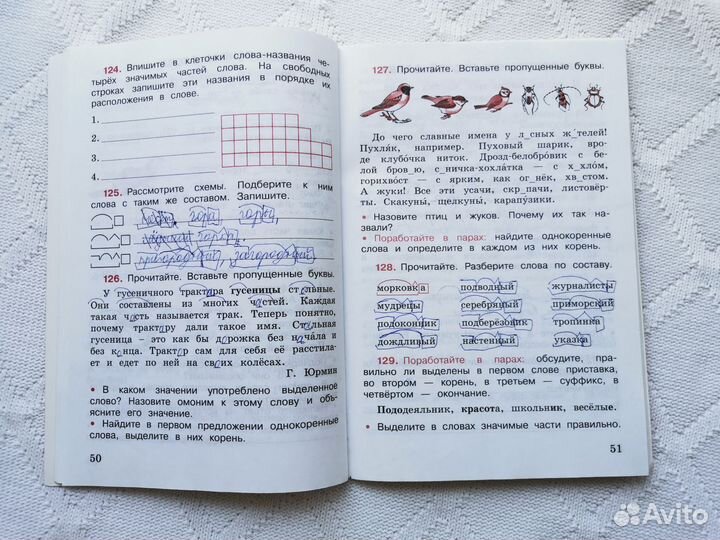 124. Впишите в клеточки слова-названия че-
тырёх значимых частей слова. На свободных
строках запишите эти названия в порядке их
расположения в слове.
1.
2.
3.
4.
125. Рассмотрите схемы. Подберите к ним
слова с таким же составом. Запишите.
гора,
пригородный, загородный.
126. Прочитайте. Вставьте пропущенные буквы.
У гусеничного трактора гусеницы стальные.
Они составлены из многих частей. Каждая
такая часть называется трак. Теперь понятно,
почему трактору дали такое имя. Стальная
гусеница – это как бы дорожка без начала и
без конца. Трактор сам для себя её расстила-
ет и едет по ней на своих колёсах.
Г. Юрмин
• В каком значении употреблено выделенное
слово? Назовите омоним к этому слову и объ-
ясните его значение.
• Найдите в первом предложении однокоренные
слова, выделите в них корень.
50
127. Прочитайте. Вставьте пропущенные буквы.
До чего славные имена у л_сных ж_телей!
Пухляк, например. Пуховый шарик, вро-
де клубочка ниток. Дрозд-белобровик – с бе-
лой бров_ю, с_ничка-хохлатка – с х_хлом,
горихвост – с ярким, как ог_нёк, хв_стом.
А жуки! Все эти усачи, скр_пачи, листовёр-
ты. Скакуны, щелкуны, карапузики.
• Назовите птиц и жуков. Почему их так на-
звали?
• Поработайте в парах: найдите однокоренные
слова и определите в каждом из них корень.
128. Прочитайте. Разберите слова по составу.
морковка подводный журналисты
мудрецы серебряный приморский
подоконник подберёзовик тропинка
дождливый настенный указка
129. Поработайте в парах: обсудите, пра-
вильно ли выделены в первом слове приставка,
во втором — корень, в третьем — суффикс, в
четвёртом — окончание.
Пододеяльник, красота, школьник, весёлые.
• Выделите в словах значимые части правильно.
51
Avito